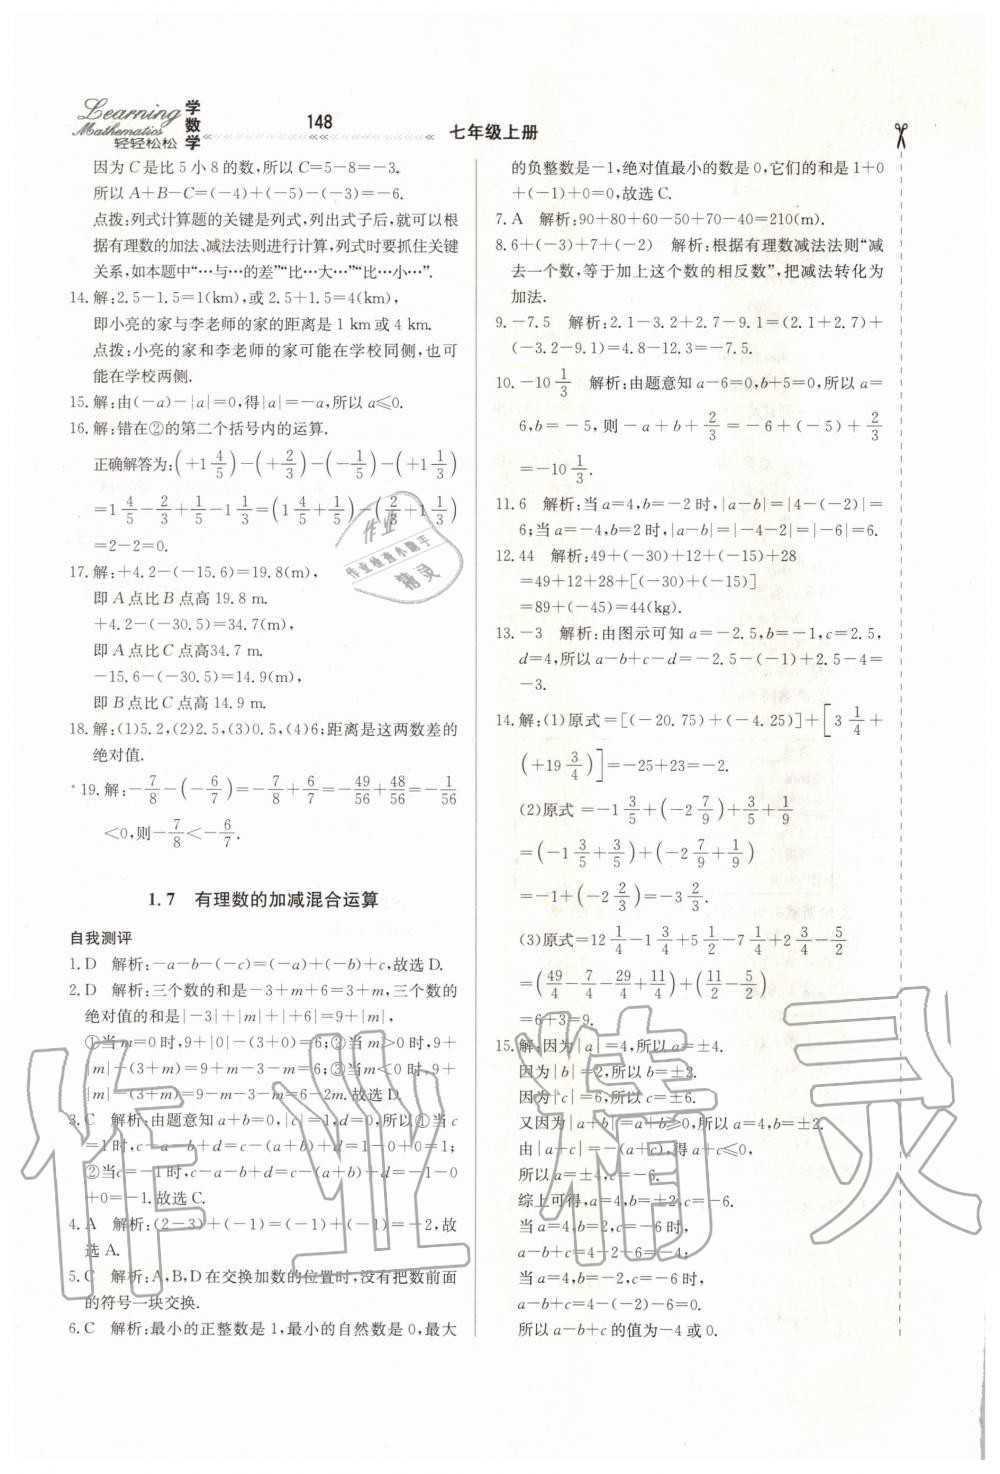 Learning
Mathematics
轻轻松松
学数学
148
七年级上册
因为C是比5小8的数,所以C=5-8=-3.
所以A+B-C=(-4)+(-5)-(-3)=-6.
点拨:列式计算题的关键是列式,列出式子后,就可以根
据有理数的加法、减法法则进行计算,列式时要抓住关键
关系,如本题中“…与…的差”“比…大…”“比…小…”.
14.解:2.5-1.5=1(km),或2.5+1.5=4(km),
即小亮的家与李老师的家的距离是1 km或4 km.
点拨:小亮的家和李老师的家可能在学校同侧,也可
能在学校两侧.
15.解:由(-a)-|a|=0,得|a|=-a,所以a≤0.
16.解:错在②的第二个括号内的运算.
正确解答为:(+1 4/5)-(+2/3)-(-1/5)-(+1 1/3)
=1 4/5-2/3+1/5-1 1/3=(1 4/5+1/5)-(2/3+1 1/3)
=2-2=0.
17.解:+4.2-(-15.6)=19.8(m),
即A点比B点高19.8 m.
+4.2-(-30.5)=34.7(m),
即A点比C点高34.7 m.
-15.6-(-30.5)=14.9(m),
即B点比C点高14.9 m.
18.解:(1)5.2,(2)2.5,(3)0.5,(4)6;距离是这两数差的
绝对值.
*19.解:-7/8-(-6/7)=-7/8+6/7=-49/56+48/56=-1/56
<0,则-7/8<-6/7.
1.7 有理数的加减混合运算
自我测评
1.D 解析:-a-b-(-c)=(-a)+(-b)+c,故选D.
2.D 解析:三个数的和是-3+m+6=3+m,三个数的
绝对值的和是|-3|+|m|+|+6|=9+|m|,
①当m=0时,9+|0|-(3+0)=6;②当m>0时,9+
|m|-(3+m)=9+m-3-m=6;③当m<0时,9+
|m|-(3+m)=9-m-3-m=6-2m.故选D.
3.C 解析:由题意知a+b=0,|c|=1,d=0,所以①当c
=1时,c-a-b+d=c-(a+b)+d=1-0+0=1;
②当c=-1时,c-a-b+d=c-(a+b)+d=-1-0
+0=-1.故选C.
4.A 解析:(2-3)+(-1)=(-1)+(-1)=-2,故
选A.
5.C 解析:A,B,D在交换加数的位置时,没有把数前面
的符号一块交换.
6.C 解析:最小的正整数是1,最小的自然数是0,最大
的负整数是-1,绝对值最小的数是0,它们的和是1+0
+(-1)+0=0,故选C.
7.A 解析:90+80+60-50+70-40=210(m).
8.6+(-3)+7+(-2) 解析:根据有理数减法法则“减
去一个数,等于加上这个数的相反数”,把减法转化为
加法.
9.-7.5 解析:2.1-3.2+2.7-9.1=(2.1+2.7)+
(-3.2-9.1)=4.8-12.3=-7.5.
10.-10 1/3 解析:由题意知a-6=0,b+5=0,所以a=
6,b=-5,则-a+b+2/3=-6+(-5)+2/3
=-10 1/3.
11.6 解析:当a=4,b=-2时,|a-b|=|4-(-2)|=
6;当a=-4,b=2时,|a-b|=|-4-2|=|-6|=6.
12.44 解析:49+(-30)+12+(-15)+28
=49+12+28+[(-30)+(-15)]
=89+(-45)=44(kg).
13.-3 解析:由图示可知a=-2.5,b=-1,c=2.5,
d=4,所以a-b+c-d=-2.5-(-1)+2.5-4=
-3.
14.解:(1)原式=[(-20.75)+(-4.25)]+[3 1/4+
(+19 3/4)]=-25+23=-2.
(2)原式=-1 3/5+(-2 7/9)+3/5+1/9
=(-1 3/5+3/5)+(-2 7/9+1/9)
=-1+(-2 2/3)=-3 2/3.
(3)原式=12 1/4-1 3/4+5 1/2-7 1/4+2 3/4-5/2
=(49/4-7/4-29/4+11/4)+(11/2-5/2)
=6+3=9.
15.解:因为|a|=4,所以a=±4.
因为|b|=2,所以b=±2.
因为|c|=6,所以c=±6.
又因为|a+b|=a+b≥0,所以a=4,b=±2.
由|a+c|=-(a+c),得a+c≤0,
所以a=±4,c=-6.
综上可得,a=4,b=±2,c=-6.
当a=4,b=2,c=-6时,
a-b+c=4-2-6=-4;
当a=4,b=-2,c=-6时,
a-b+c=4-(-2)-6=0.
所以a-b+c的值为-4或0.
作业
作业检查小助手
精灵
作业精灵